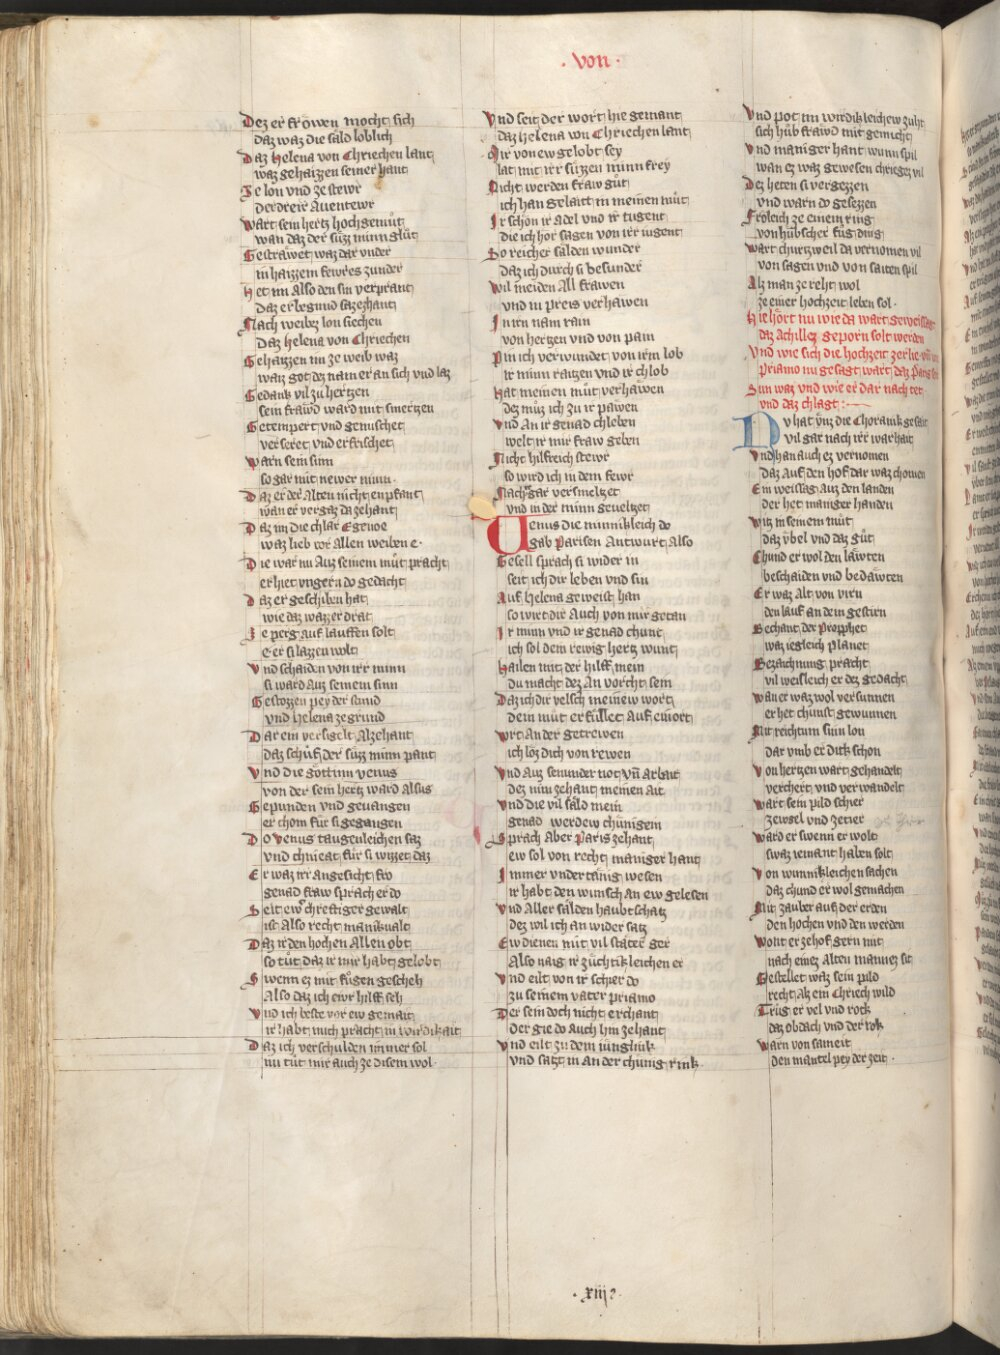 · von ·
Dez er frowen mocht sich
daz waz die sald loblich
Daz Helena von Chriechen lant
waz gehaizzen seiner hant
Ze lon vnd ze stewr
der dreir Auentewr
Wart sein hertz hochgemůt
wan daz der sůzz minn glůt
Gestrawet waz dar vnder
in haizzem fewres zunder
Het im also den sin verprant
daz er begund sazehant
Nach weibez lon siechen
Daz Helena von Chriechen
Gehaizzen im ze weib waz
waz got dez nam er an sich vnd laz
Gedank vil zu hertzen
sein frawd ward mit smertzen
Getempert vnd gemischet
verseret vnd erfrischet
Warn sein sinn
so gar mit newer minn·
Daz er der Alten nicht enpfant
wan er vergaz da zehant
Daz im die chlar Egenoe
waz lieb vor Allen weiben e·
Die war im Auz seinem můt pracht
er hiet vngern do gedacht
Daz er geschriben hat
wie daz wazzer drat
Ze perg auf lauffen solt
e er si lazzen wolt
Vnd schaiden von irr minn
si ward Auz seinem sinn
Gestozzen pey der stund
vnd Helena ze grund
Dar ein versigelt Alzehant
daz schůf der sůzz minn pant
Vnd die gőttinn venus
von der sein hertz ward Alsus
Gepunden vnd geuangen
er chom fůr si gegangen
Do Venus taugenleichen saz
vnd chnieat fůr si wizzet daz
Er waz irr angesicht fro
genad fraw sprach er do
Seit ewr chreftiger gewalt
ist Also recht manikualt
Daz ir den hochen Allen obt
so tůt daz ir mir habt gelobt
Swenn ez mit fůgen gescheh
Also daz ich ewr hilff seh
Vnd ich beste vor ew gemait
ir habt mich pracht in wirdikait
Daz ich verschulden immer sol
nu tůt mir auch ze disem wol·
Vnd seit der wort hie genant
daz Helena von Chriechen lant
Mir von ew gelobt sey
lat mit irr sůzzen minn frey
Nicht werden fraw gůt
ich han gelait in meinen můt
Ir schon ir adel vnd ir tugent
die ich hőr sagen von irr iugent
So reicher sälden wunder
daz ich durch si besunder
Wil meiden all frawen
vnd in preis verhawen
In irn nam rain
von hertzen vnd von pain
Pin ich verwundet von irm lob
ir minn raizen vnd ir chlob
Hat meinen můt verhawen
dez můz ich zu ir pawen
Vnd An ir genad chleben
welt ir mir fraw geben
Nicht hilfreich stewr
so wird ich in dem fewr
Nach gar versmeltzet
vnd in der minn geueltzet
Venus die minnikleich do
gab Parisen Antwurt Also
Gesell sprach si wider in
seit ich dir leben vnd sin
Auf Helena geweist han
so wirt dir Auch von mir getan
Ir minn vnd ir genad chunt
ich sol dem rewig hertz wunt
Hailen mit der hilff mein
du macht dez An vorcht sein
Daz ich dir velsch meinew wort
dein můt erfůllet Auf ein ort
Wirt an der getrewen
ich löz dich von rewen
Vnd Auz senunder not vnd Arbait
dez nim zehant meinen Ait
Vnd die vil säld mein
genad werdew chůnigein
Sprach Aber Paris zehant
ew sol von recht maniger hant
Immer vndertänig wesen
ir habt den wunsch an ew gelesen
Vnd Aller sälden haubtschatz
dez wil ich an wider satz
Ew dienen mit vil stäter ger
Also naig ir zůchtikleichen er
Vnd eilt von ir schier do
zu seinem vater priamo
Der sein doch nicht erchant
der gie do Auch hin zehant
Vnd eilt zu dem iunglink
vnd satzt in an der chunig rink·
Vnd pot im wirdikleichew zuht
sich hůb frawd mit genucht
Vnd maniger hant wunn spil
wan ez waz gewesen chrieges vil
Dez heten si vergezzen
vnd warn do gesezzen
Frőleich ze einem ring
von hůbscher fůg ding
Wart churtzweil da vernomen vil
von sagen vnd von saiten spil
Alz man ze reht wol
ze einer hochzeit leben sol·
Hie hőrt nu wie da wart geweissagt
daz Achilles geporn solt werden
Vnd wie sich die hochzeit zerlie vnd
Priamo nu gesagt wart daz Paris sein
Sun waz vnd wie er dar nach tet
vnd daz chlagt:
Du hat vns die Choranik geseit
vil gar nach irr warhait
Vnd han auch ez vernomen
daz Auf den hof dar waz chomen
Ein weissag Auz den landen
der het maniger handen
Witz in seinem můt
daz vbel vnd daz gůt
Chund er wol den läwten
bescheiden vnd bedäwten
Er waz Alt von virn
den lauf an dem gestirn
Bechant der Propphet
waz iegleich planet
Bezaichnung pracht
vil weisleich er dez gedacht
Wan er waz wol versunnen
er het chunst gewunnen
Mit reichtum sinn lon
dar vmb er dick schon
Von hertzen wart gehandelt
verchert vnd verwandelt
Wart sein pild schier
zewsel vnd zetier
Ward er swenn er wolt
swaz iemant haben solt
Von wunnikleichen sachen
daz chund er wol gemachen
Mit zauber auf der erden
den hochen vnd den werden
Wont er ze hof gern mit
nach einez alten mannez sit
Gestellet waz sein pild
recht Alz ein Chriech wild
Trůg er vel vnd rock
daz obdach vnd der rok
Warn von sameit
den mantel pey der zeit·
· xiij ·